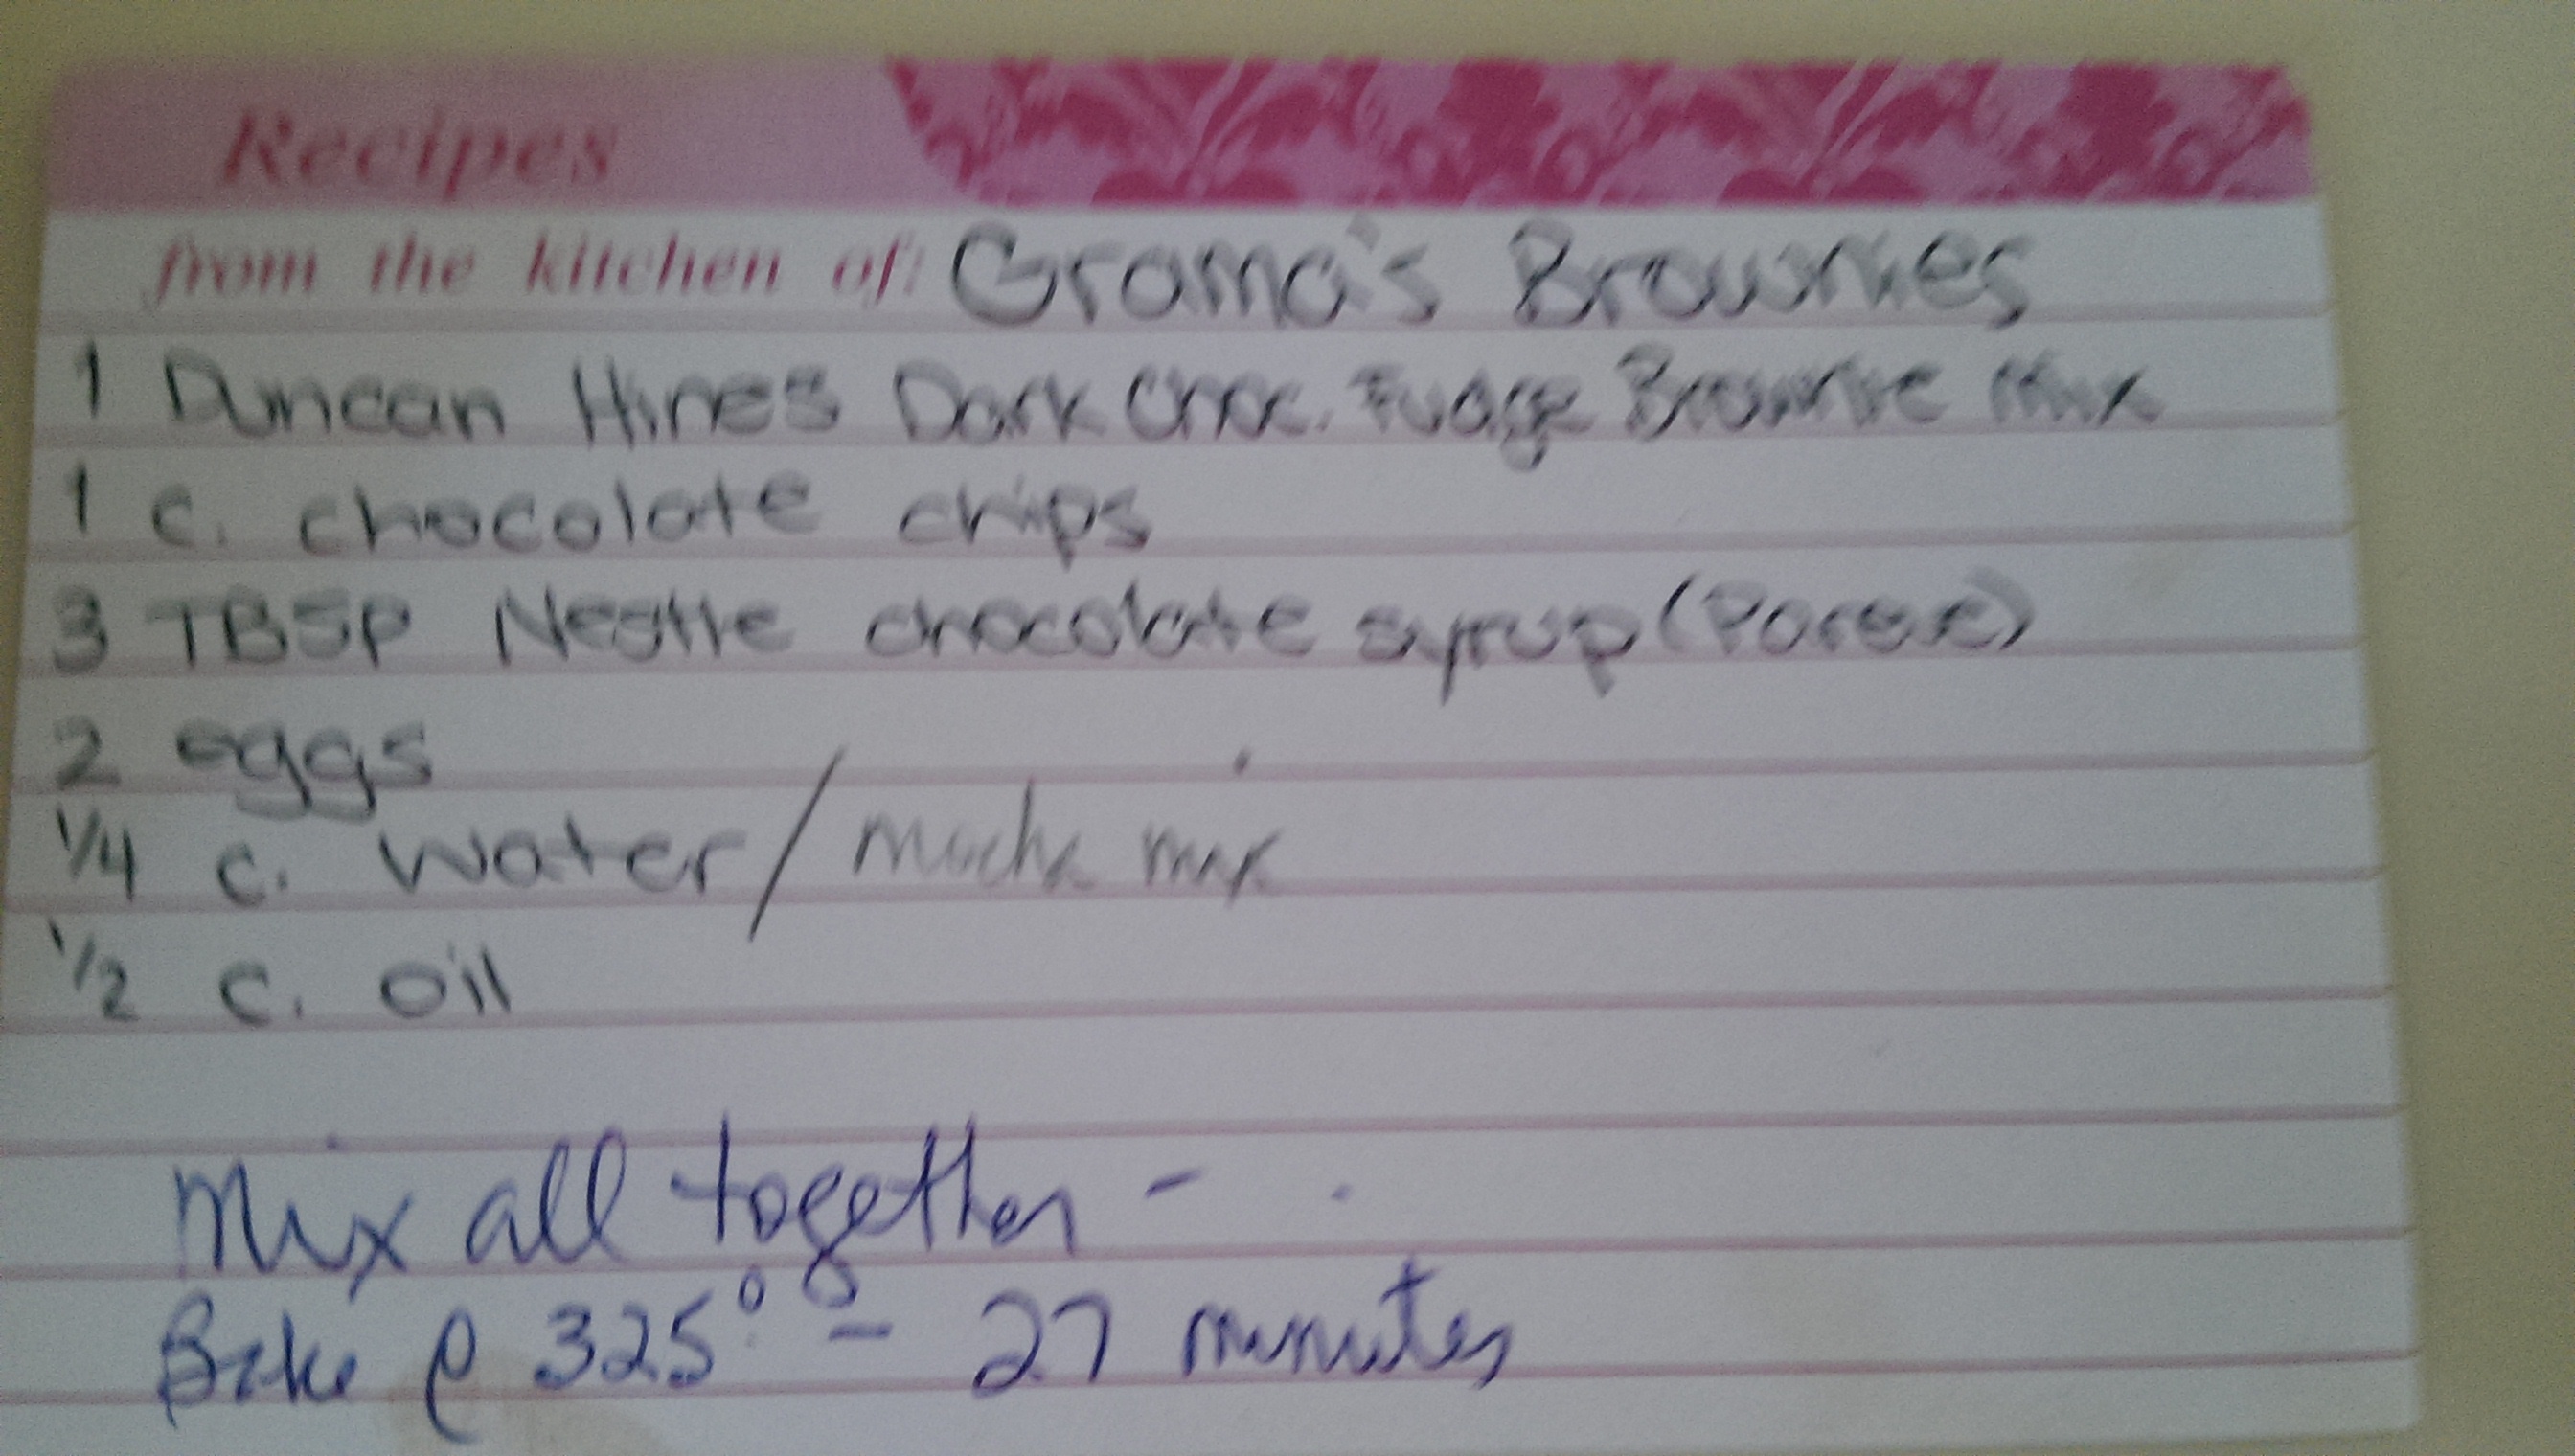 Recipes
from the kitchen of: Grama's Brownies
1 Duncan Hines Dark Choc. Fudge Brownie Mix
1 c. chocolate chips
3 TBSP Nestle chocolate syrup (Pareve)
2 eggs
1/4 c. water / mocha mix
1/2 c. oil
Mix all together -
Bake @ 325° - 27 minutes